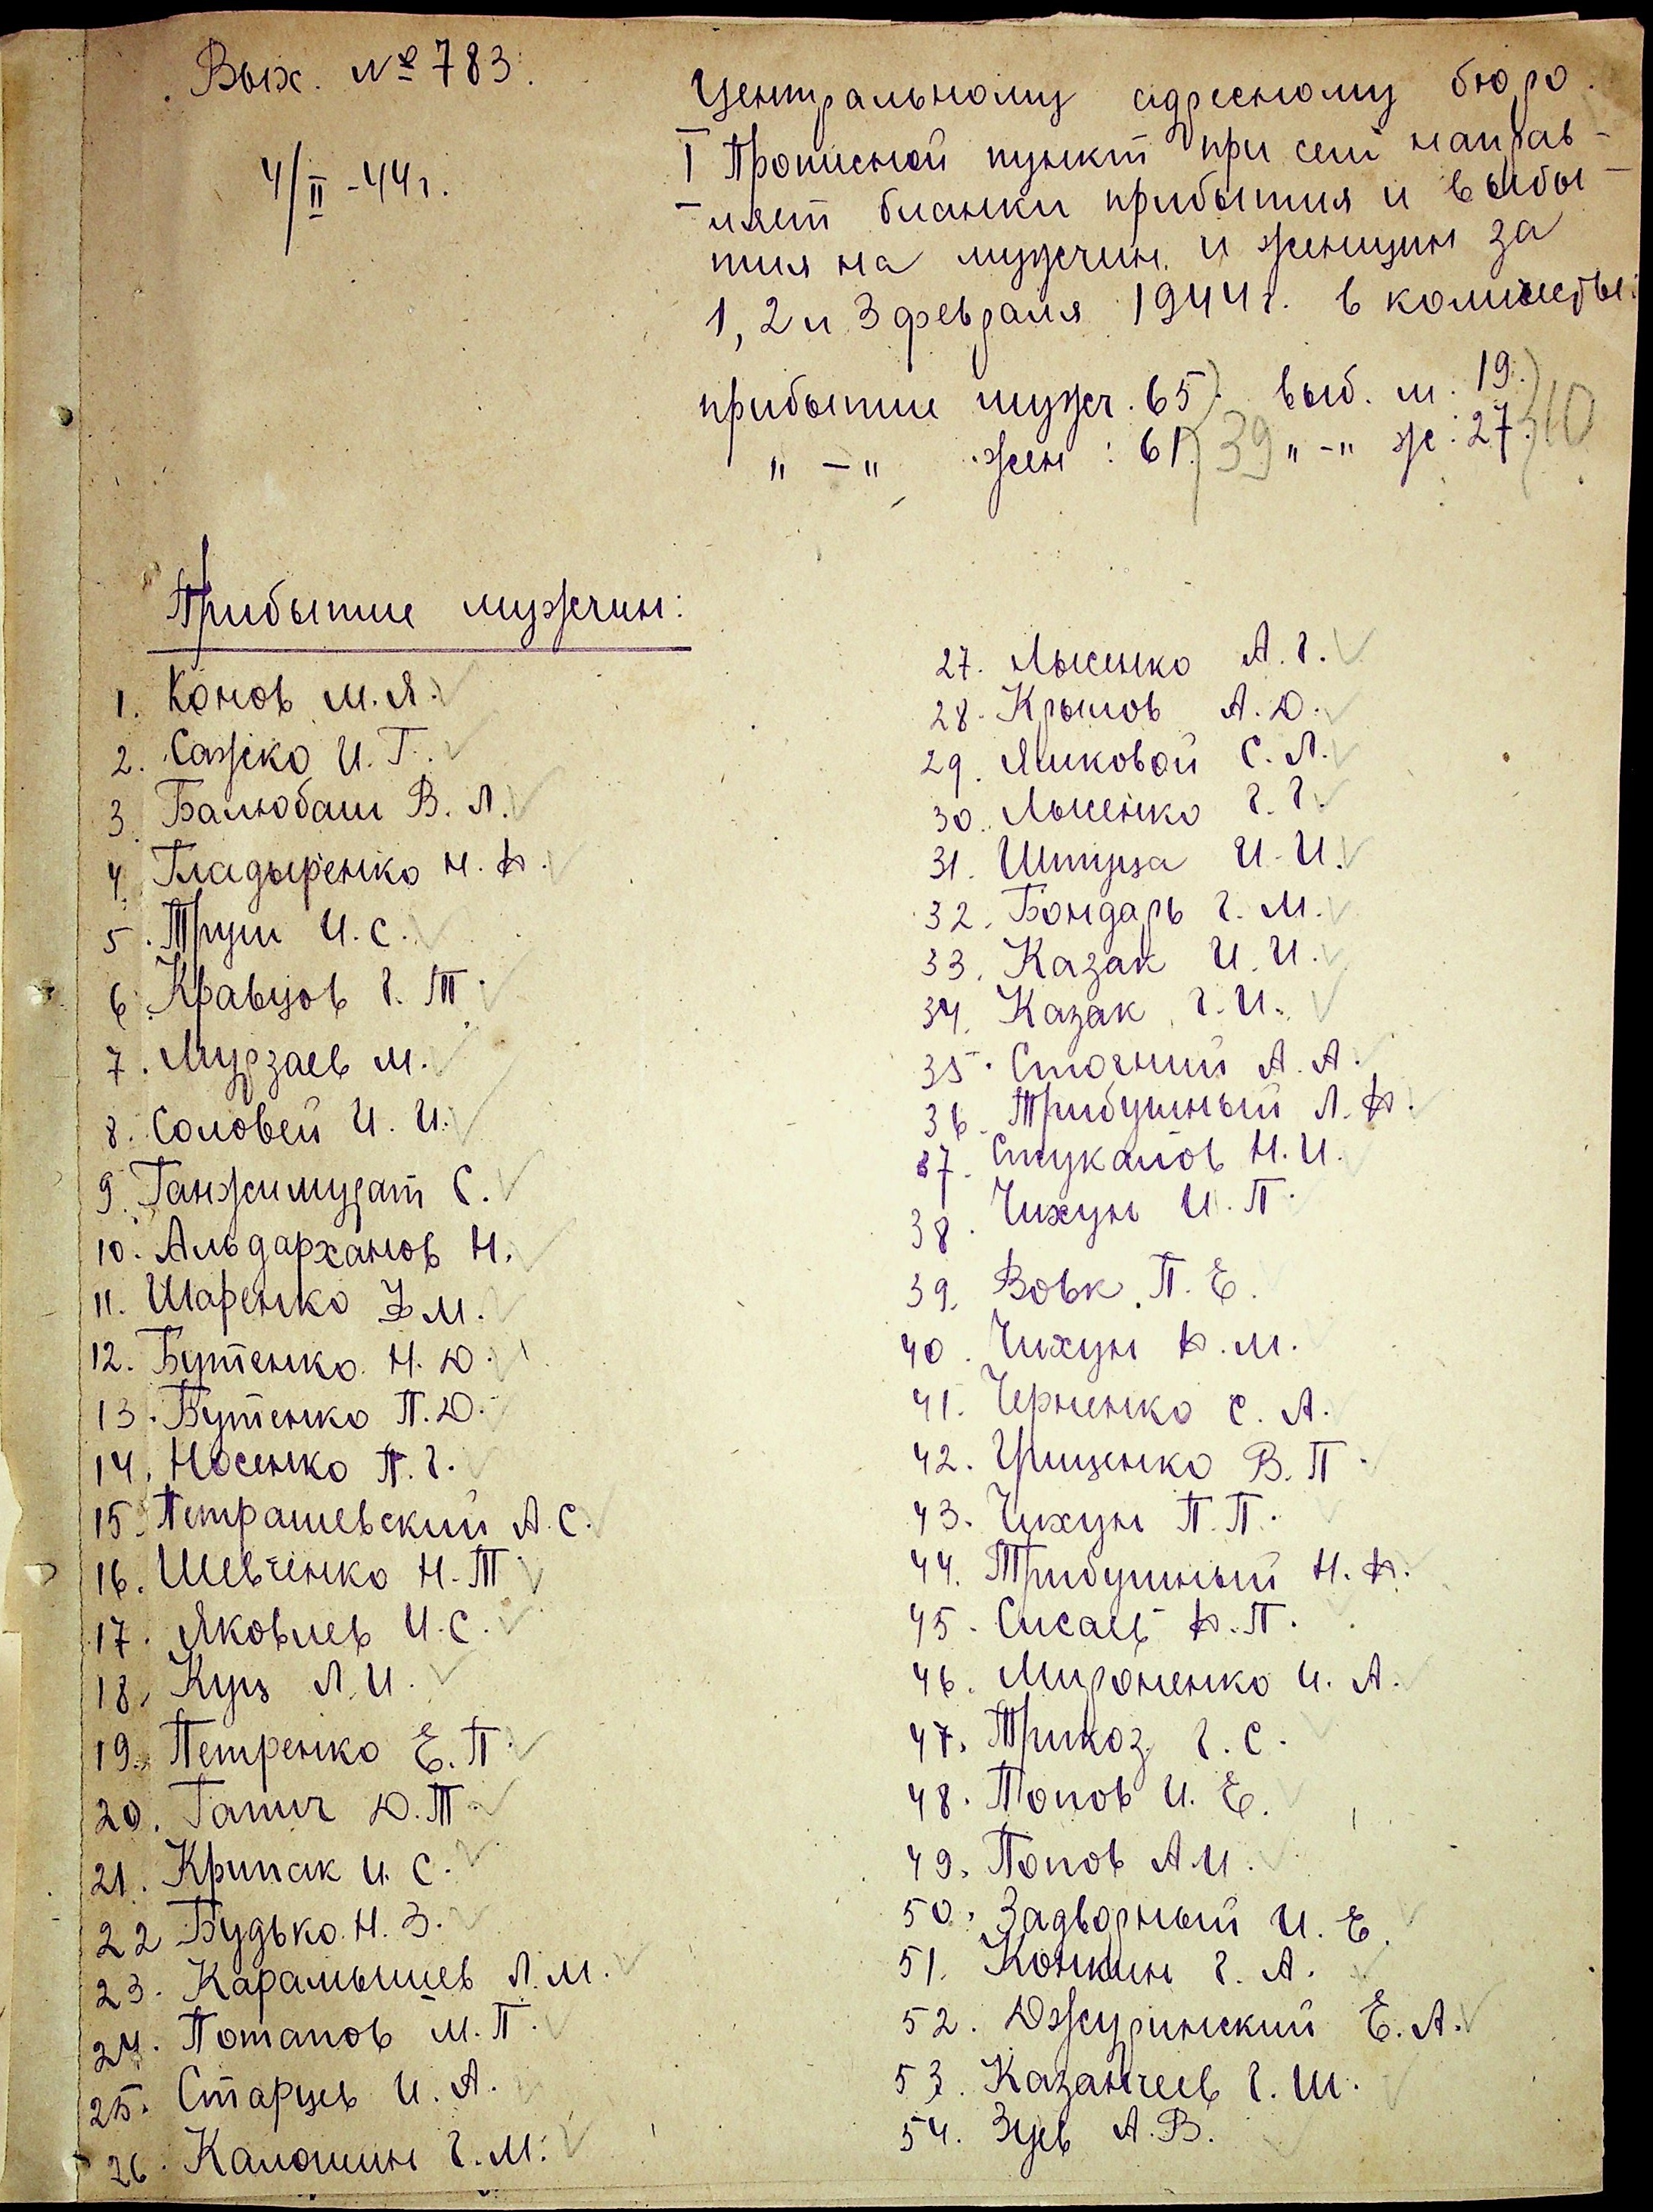 Вых. № 783.
4/II -44г.
Центральному адресному бюро.
I Прописной пункт при сем направ-
ляет бланки прибытия и выбы-
тия на мужчин и женщин за
1, 2 и 3 февраля 1944г. в количестве:
прибытие мужч. 65) выб. м. 19.)
" — " жен : 61) 39 " - " ж : 27.)
Прибытие мужчин:
1. Конов М.Я.
2. Сажко И.Г.
3. Балюбаш В.Л.
4. Гладыренко Н.Ф.
5. Труш И.С.
6. Кравцов Г.Т.
7. Мурзаев М.
8. Соловей И.И.
9. Ганжимурат С.
10. Альдарханов Н.
11. Шаренко М.
12. Бутенко Н.D.
13. Бутенко П.D.
14. Носенко П.Г.
15. Петрашевский А.С.
16. Шевченко Н.Т
17. Яковлев И.С.
18. Куц Л.И.
19. Петренко Е.П.
20. Гапич D.Т.
21. Крипак И.С.
22 Будько Н.З.
23. Карамышев Л.М.
24. Потапов М.П.
25. Старцев И.А.
26. Калошин Г.М.
27. Лысенко А.Г.
28. Крылов А.D.
29. Яшковой С.Л.
30. Лысенко Г.Г.
31. Штуца И.И.
32. Бондарь Г.М.
33. Казак И.И.
34. Казак Г.И.
35. Стогний А.А.
36. Трибушный Л.Ф.
37. Стукалов Н.И.
38. Чихун И.П.
39. Вовк П.Е.
40. Чихун Ф.М.
41. Черненко С.А.
42. Грищенко В.П.
43. Чихун П.П.
44. Трибушный Н.Ф.
45. Сисаев Ф.П.
46. Мироненко И.А.
47. Трикоз Г.С.
48. Попов И.Е.
49. Попов А.И.
50. Задворный И.Е.
51. Конкин Г.А.
52. Dжуринский Е.А.
53. Казанчеев Г.Ш.
54. Зуев А.В.